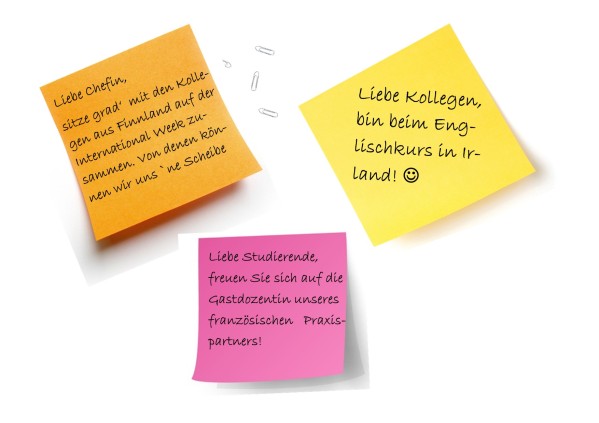 Liebe Chefin,
sitze grad' mit den Kolle-
gen aus Finnland auf der
International Week zu-
sammen. Von denen kön-
nen wir uns `ne Scheibe
Liebe Kollegen,
bin beim Eng-
lischkurs in Ir-
land! ☺
Liebe Studierende,
freuen Sie sich auf die
Gastdozentin unseres
französischen Praxis-
partners!